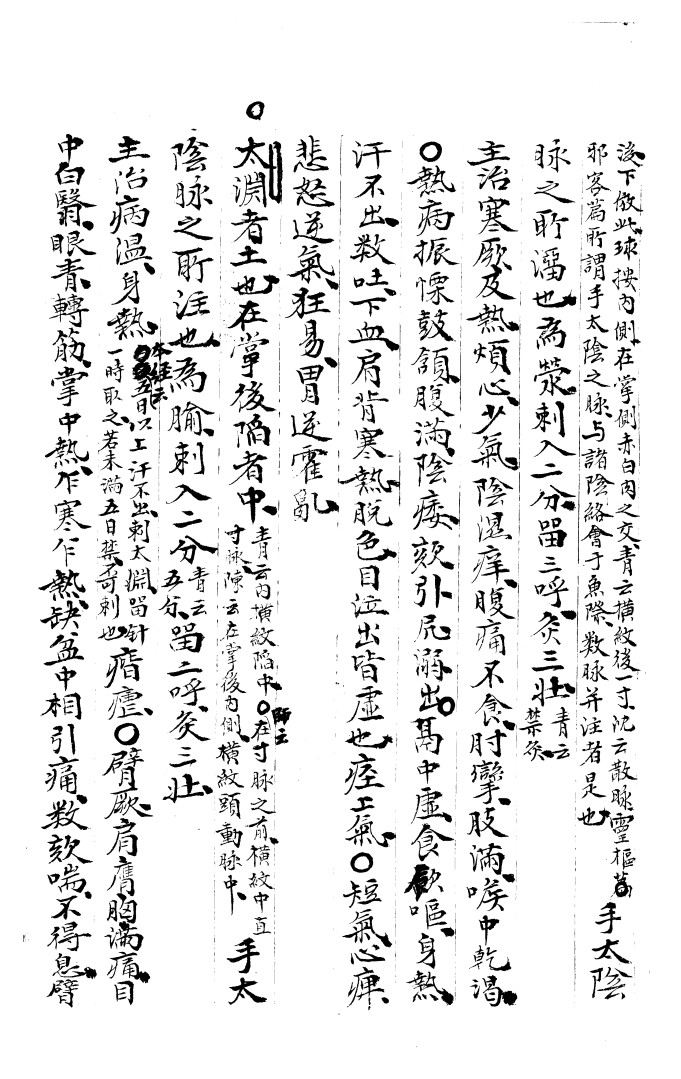 後下倣此球按內側在掌側赤白肉之交青云橫紋後一寸沈云散脉靈樞篇
邪客篇所謂手太陰之脉与諸陰絡會于魚際数脉并注者是也
手太陰
脉之所溜也為滎刺入二分留三呼灸三壯
青云
禁灸
主治寒厥及熱煩心少氣陰濕痒腹痛不食肘攣肢滿喉中乾渴
〇熱病振慄鼓頷腹滿陰痿欬引尻溺出〇鬲中虛食飲嘔身熱
汗不出数吐下血肩背寒熱脫色目泣出皆虛也痓上氣〇短氣心痺
悲怒逆氣狂易胃逆霍亂
〇太淵者土也在掌後陷者中
青云內橫紋陷中〇師云在寸脉之前橫紋中直
寸脉陳云在掌後內側橫紋頭動脉中
手太
陰脉之所注也為腧刺入二分
青云
五分
留二呼灸三壯
主治病溫身熱
本經云五日以上汗不出刺太淵留針
一時取之若未滿五日禁不可刺也
痞瘧〇臂厥肩膺胸滿痛目
中白翳眼青轉筋掌中熱乍寒乍熱缺盆中相引痛数欬喘不得息臂